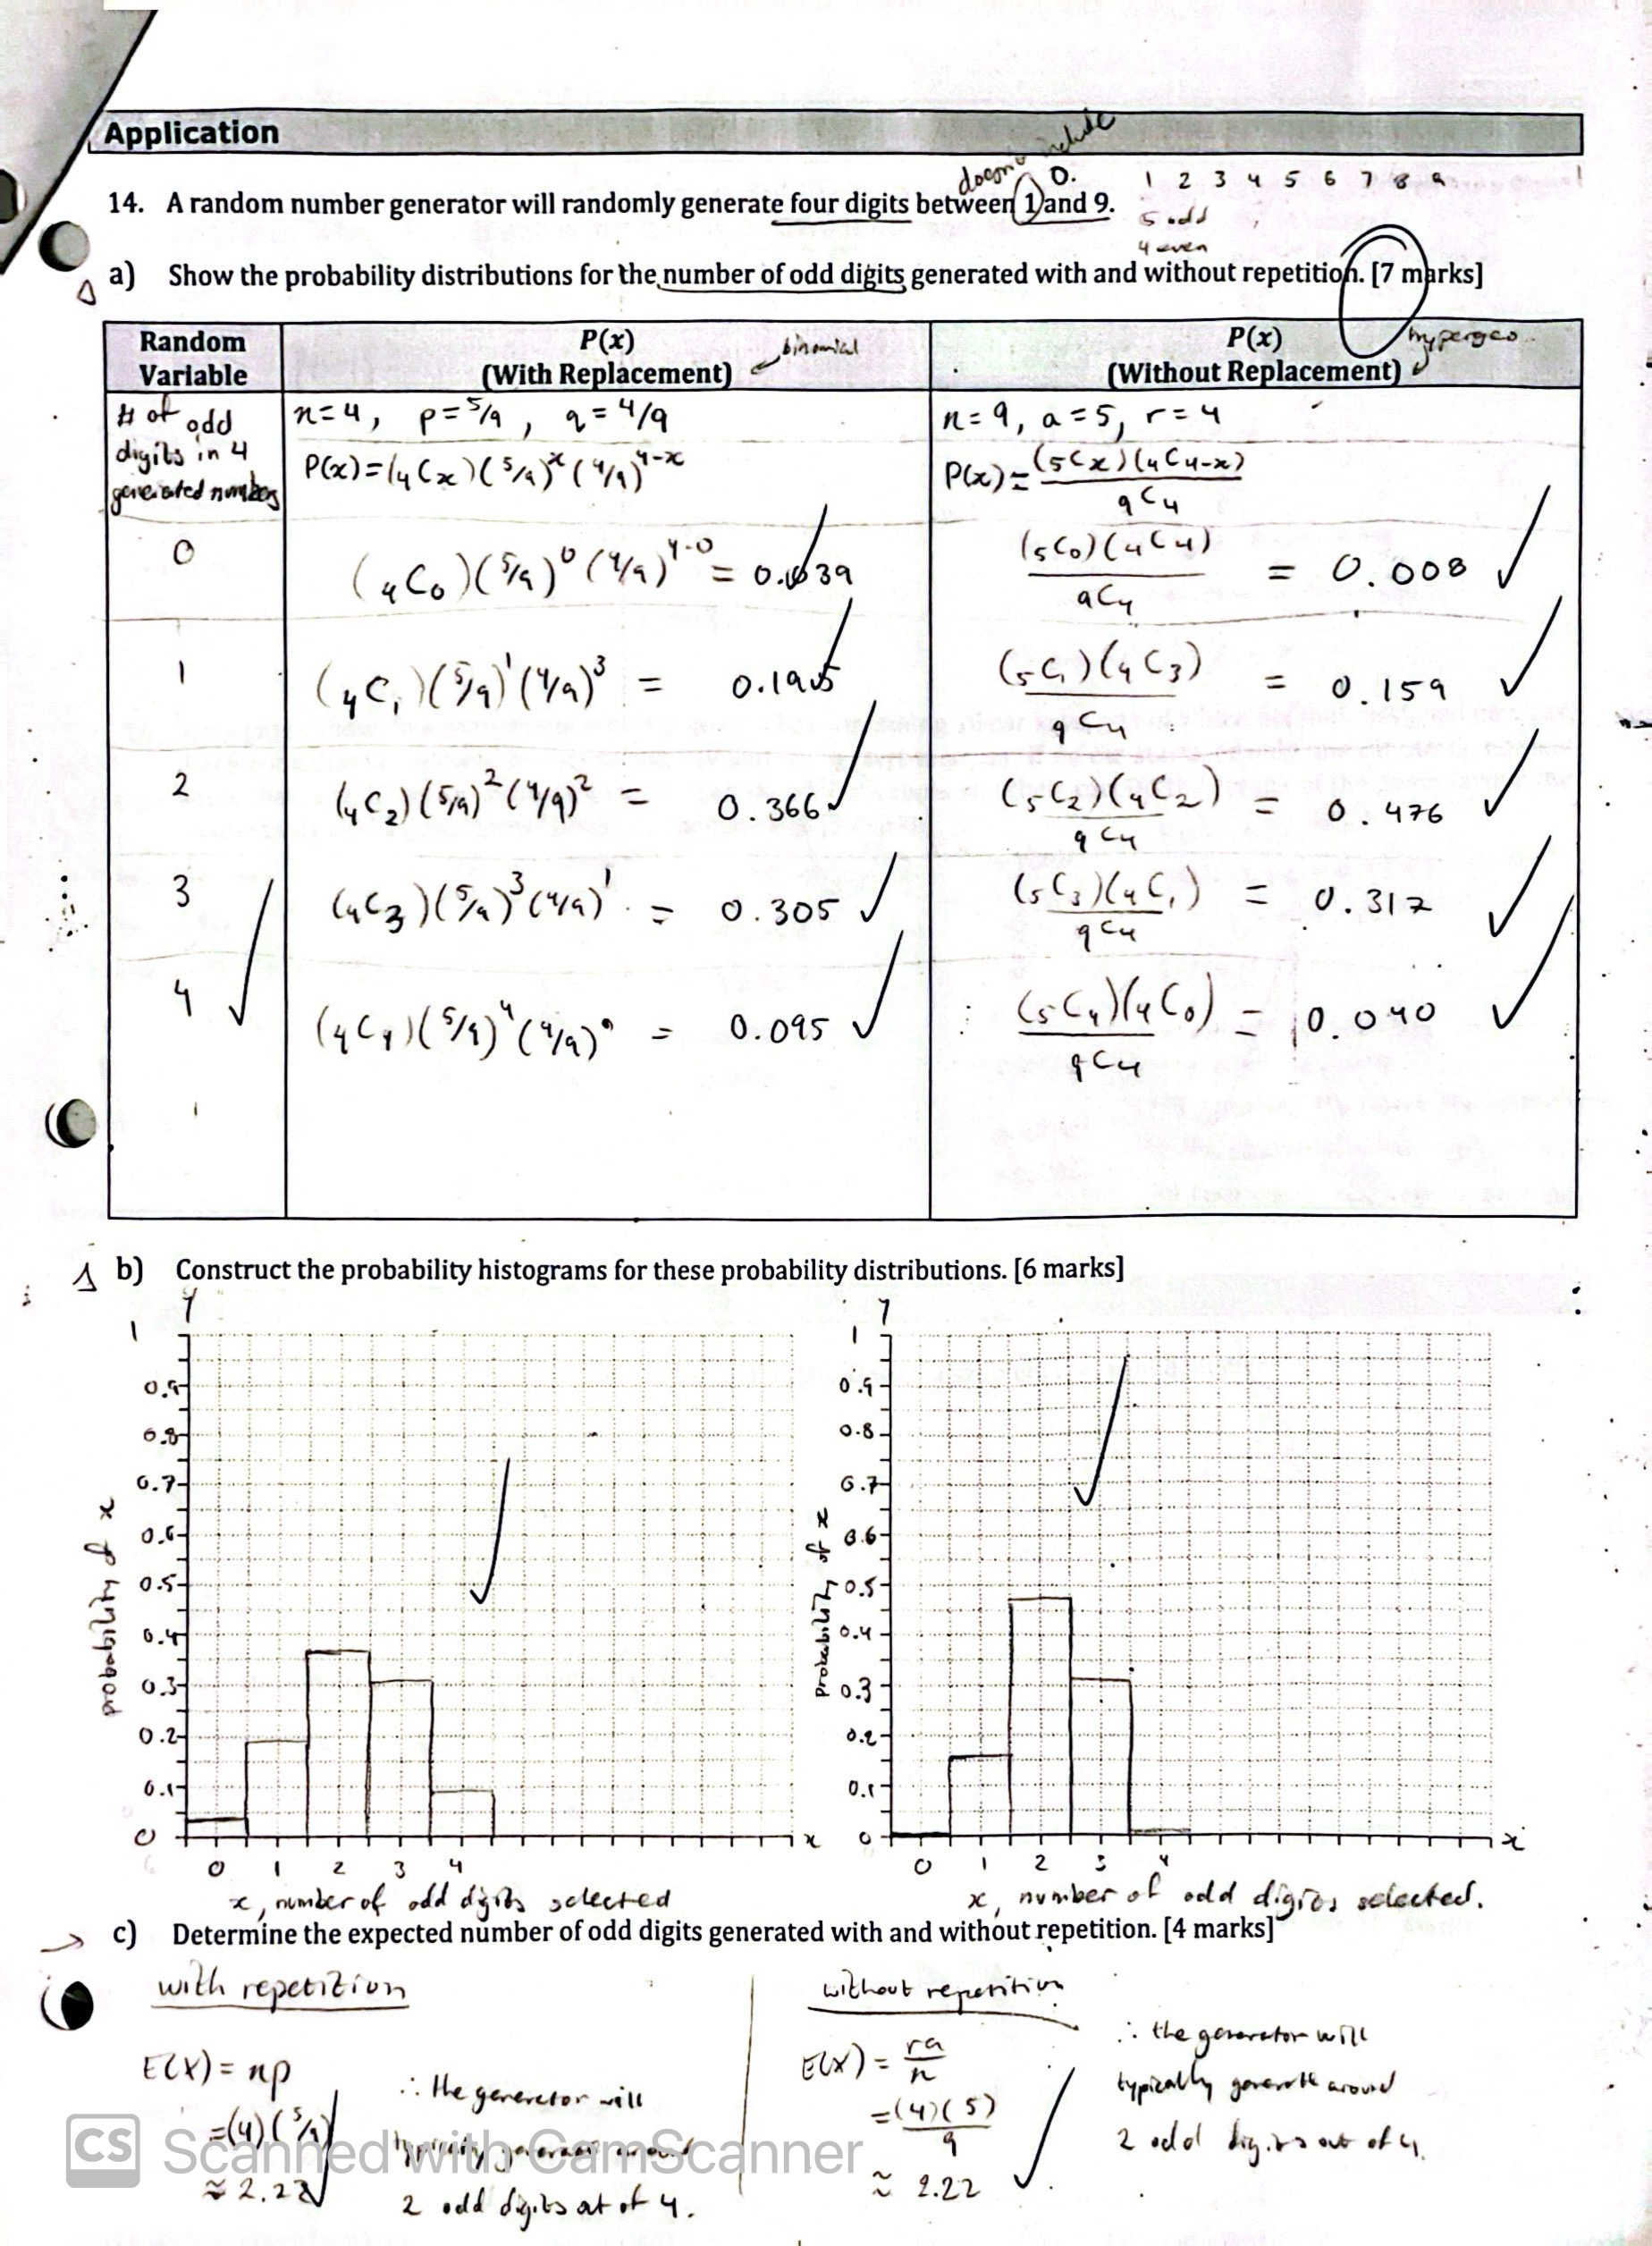 Application
doesn't include 0.
1 2 3 4 5 6 7 8 9
14. A random number generator will randomly generate four digits between 1 and 9.
5 odd
4 even
a) Show the probability distributions for the number of odd digits generated with and without repetition. [7 marks]
Random Variable
P(x) (With Replacement)
binomial
P(x) (Without Replacement)
hypergeo..
# of odd digits in 4 generated numbers
n=4, p=5/9, q=4/9
P(x)=(4Cx)(5/9)^x(4/9)^4-x
n=9, a=5, r=4
P(x)=(5Cx)(4C4-x)/9C4
0
(4C0)(5/9)^0(4/9)^4-0 = 0.039
(5C0)(4C4)/9C4 = 0.008
1
(4C1)(5/9)^1(4/9)^3 = 0.195
(5C1)(4C3)/9C4 = 0.159
2
(4C2)(5/9)^2(4/9)^2 = 0.366
(5C2)(4C2)/9C4 = 0.476
3
(4C3)(5/9)^3(4/9)^1 = 0.305
(5C3)(4C1)/9C4 = 0.317
4
(4C4)(5/9)^4(4/9)^0 = 0.095
(5C4)(4C0)/9C4 = 0.040
b) Construct the probability histograms for these probability distributions. [6 marks]
y
1
0.9
0.8
0.7
0.6
0.5
0.4
0.3
0.2
0.1
0
probability of x
0 1 2 3 4
x
x, number of odd digits selected
y
1
0.9
0.8
0.7
0.6
0.5
0.4
0.3
0.2
0.1
0
probability of x
0 1 2 3 4
x
x, number of odd digits selected.
c) Determine the expected number of odd digits generated with and without repetition. [4 marks]
with repetition
E(X) = np
=(4)(5/9)
≈ 2.22
∴ the generator will
typically generate around
2 odd digits out of 4.
without repetition
E(X) = ra/n
=(4)(5)/9
≈ 2.22
∴ the generator will
typically generate around
2 odd digits out of 4.
CS Scanned with CamScanner